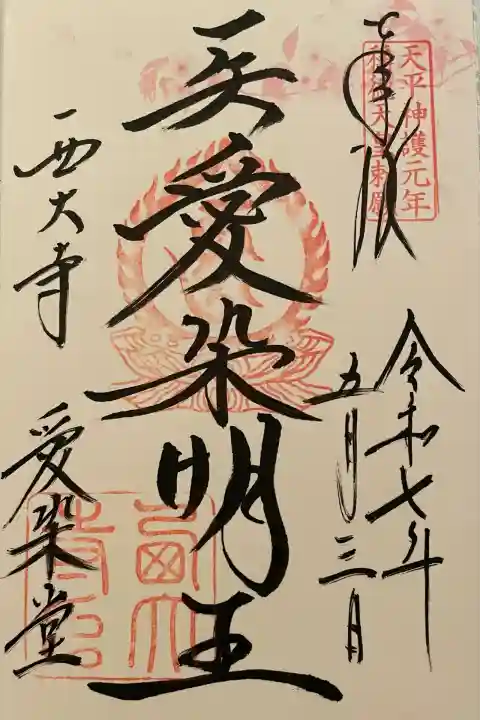 奉拝
天平神護元年
称徳天皇勅願
令和七年
五月三日
愛染明王
西大寺
愛染堂
西大
寺印